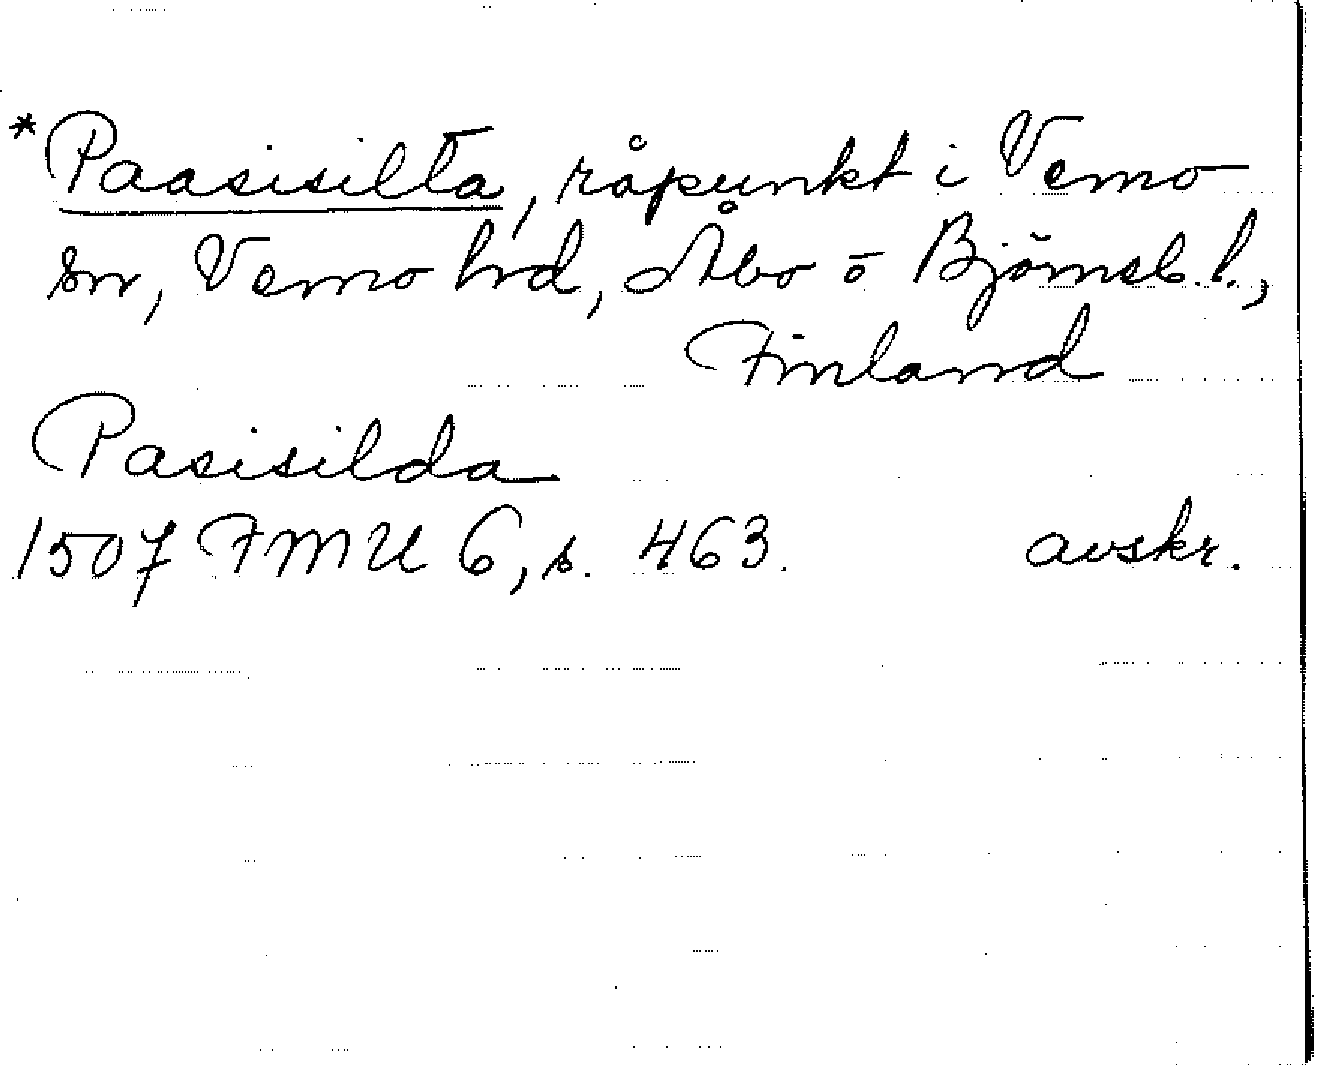 *Paasisilta, råpunkt i Vemo
sn, Vemo hrd, Åbo o Björneb. l.,
Finland
Pasisilda
1507 FMU 6, s. 463. avskr.